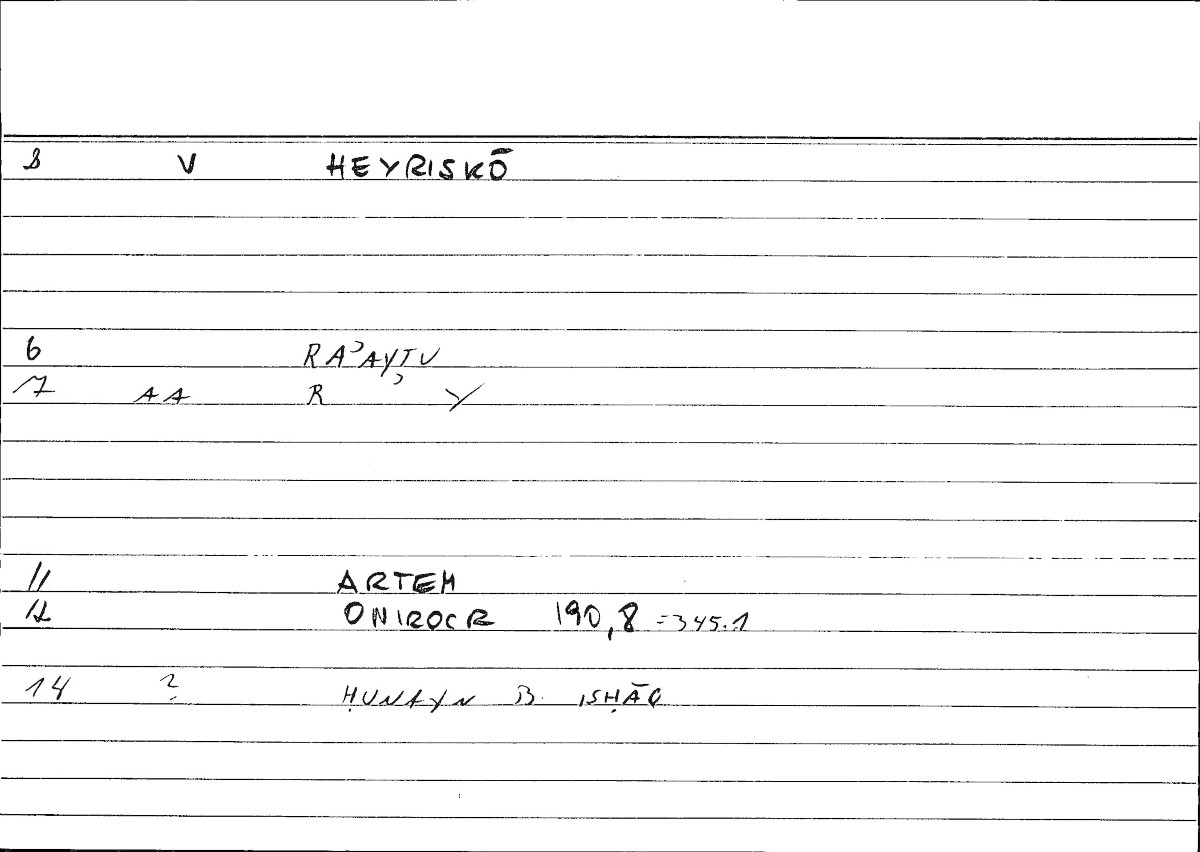 3 V HEYRISKŌ
6 RAʾAYTU
7 AA R ʾ Y
11 ARTEM
12 ONIROCR 190,8 =345.1
14 ? ḤUNAYN B. ISḤĀQ